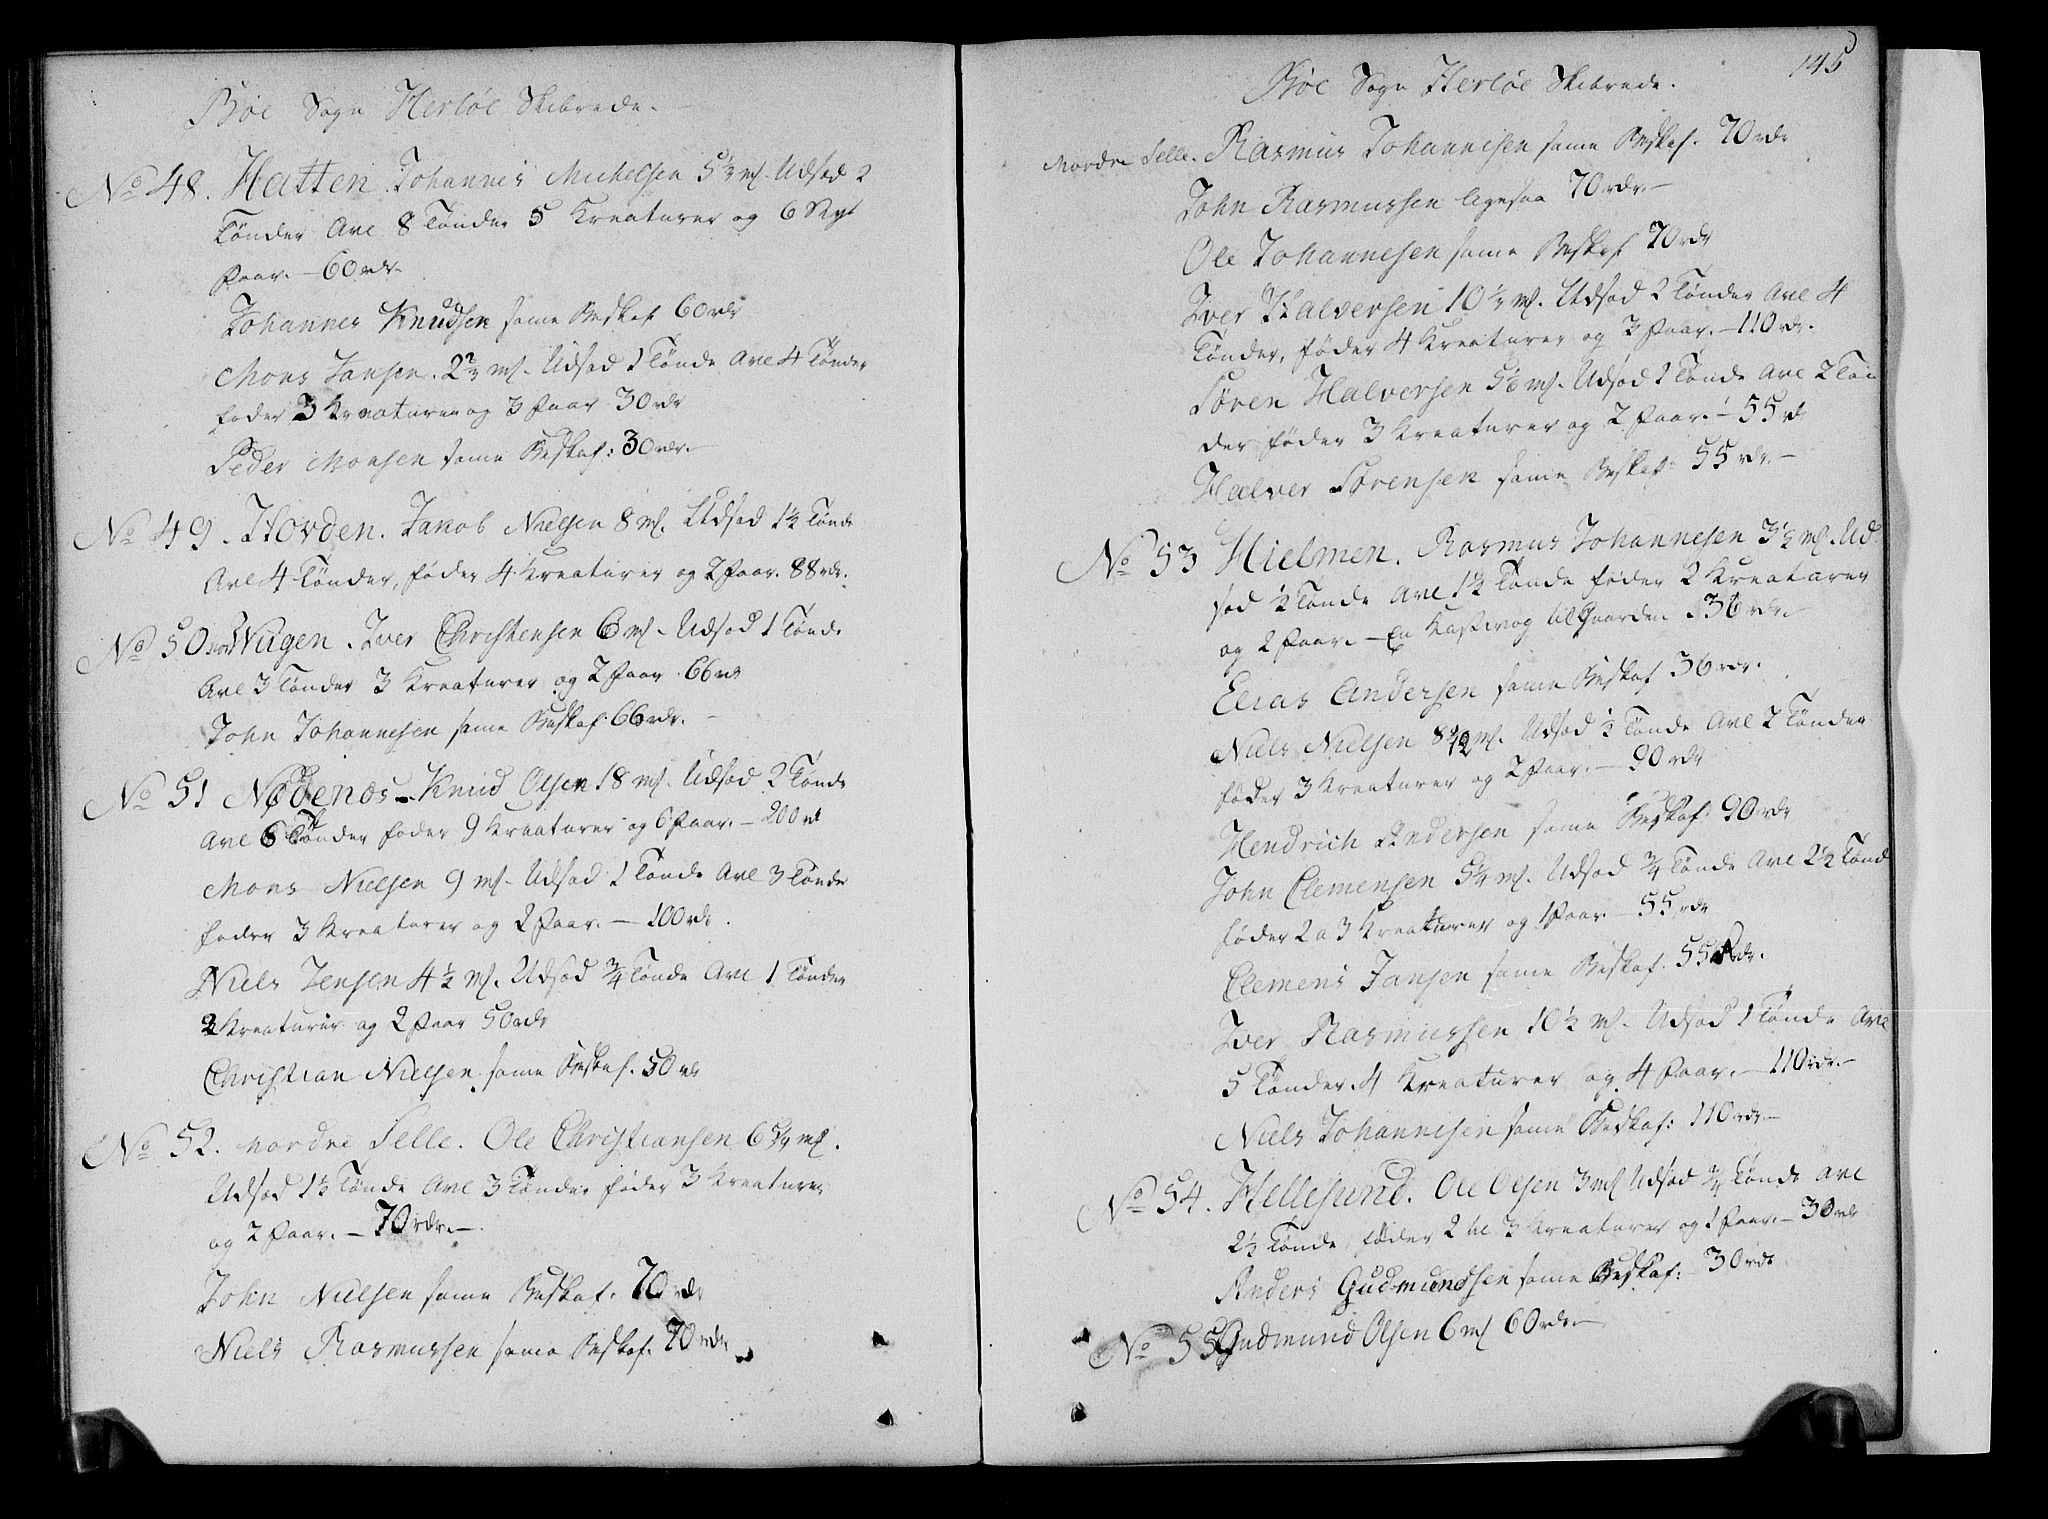 Bøe Sogn Herløe Skibrede.
No 48. Hatten. Johannes Michelsen 5 1/3 ml. Udsæd 2
Tønder Avl 8 Tønder 5 Kreaturer og 6 Styk
Faar. — 60 rdr.
Johannes Knudsen same Beskaf. 60 rdr
Mons Jansen. 2 2/3 ml. Udsæd 1 Tønde Avl 4 Tønder
føder 3 Kreaturer og 3 Faar 30 rdr
Peder Monsen same Beskaf: 30 rdr.
No 49. Hovden. Jakob Nielsen 8 ml. Udsæd 1 1/2 Tønde
Avl 4 Tønder, føder 4 Kreaturer og 2 Faar. 88 rdr.
No 50 Vaagen. Iver Christensen 6 ml. Udsæd 1 Tønde
Avl 3 Tønder 3 Kreaturer og 2 Faar 66 rdr
John Johannesen same Beskaf. 66 rdr. —
No 51 Nødenæs - Knud Olsen 18 ml. Udsæd 2 Tønde
Avl 6 Tønder føder 9 Kreaturer og 6 Faar. — 200 rdr
Mons Nielsen 9 ml. Udsæd 1 Tønde Avl 3 Tønde
føder 3 Kreaturer og 2 Faar. — 100 rdr.
Niels Jensen 4 1/2 ml. Udsæd 3/4 Tønde Avl 1 Tønder
2 Kreaturer og 2 Faar 50 rdr
Christian Nielsen same Beskaf. 50 rdr
No 52. nordre Selle. Ole Christiansen 6 3/4 ml.
Udsæd 1 1/2 Tønde Avl 3 Tønder føder 3 Kreaturer
og 2 Faar. — 70 rdr. —
John Nielsen same Beskaf. 70 rdr
Niels Rasmussen same Beskaf. 70 rdr
145
Bøe Sogn Herløe Skibrede.
Nordre Selle. Rasmus Johannesen same Beskaf. 70 rdr
John Rasmussen ligesaa 70 rdr. —
Ole Johannesen same Beskaf 70 rdr
Iver Halversen 10 1/2 ml. Udsæd 2 Tønder Avl 4
Tønder, føder 4 Kreaturer og 3 Faar. — 110 rdr.
Søren Halversen 5 1/6 ml. Udsæd 1 Tønde Avl 2 Tøn
der føder 3 Kreaturer og 2 Faar. — 55 rdr
Halver Sørensen same Beskaf. 55 rdr. —
No 53 Hielmen. Rasmus Johannesen 3 1/2 ml. Ud
sæd 1/2 Tønde Avl 1 1/2 Tønde føder 2 Kreaturer
og 2 Faar. — En Kastevog til Gaarden 36 rdr. —
Elias Andersen same Beskaf 36 rdr.
Niels Nielsen 8 ml. Udsæd 1/2 Tønde Avl 2 Tønder
føder 3 Kreaturer og 2 Faar. — 90 rdr
Hendrich Andersen same Beskaf: 90 rdr
John Clemensen 5 1/4 ml. Udsæd 3/4 Tønde Avl 2 1/2 Tønd
føder 2 a 3 Kreaturer og 1 Faar. — 55 rdr
Clemens Jansen same Beskaf. 55 rdr.
Iver Rasmussen 10 1/2 ml. Udsæd 1 Tønde Avl
5 Tønder. 4 Kreaturer og 4 Faar. — 110 rdr. —
Niels Johannesen same Beskaf: 110 rdr —
No 54. Hellesund. Ole Olsen 3 ml Udsæd 3/4 Tønde avl
2 1/2 Tønde, føder 2 til 3 Kreaturer og 1 Faar. — 30 rdr
Anders Gudmundsen same Beskaf: 30 rdr
No 55 Gudmund Olsen 6 ml 60 rdr —